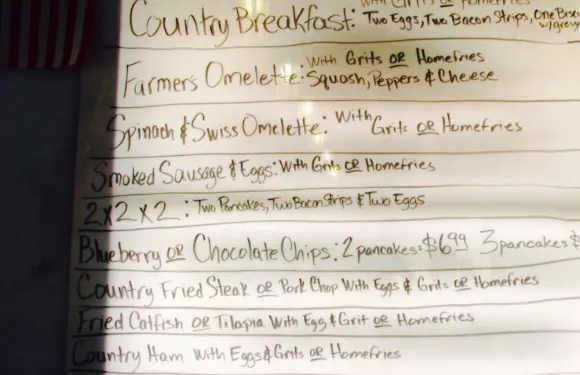 OR Homefries
Country Breakfast: Two Eggs, Two Bacon Strips, One
w/gravy
Farmer's Omelette: With Grits OR Homefries
Squash, Peppers & Cheese
Spinach & Swiss Omelette: With Grits OR Homefries
Smoked Sausage & Eggs: With Grits OR Homefries
2x2x2: Two Pancakes, Two Bacon Strips & Two Eggs
Blueberry OR Chocolate Chips: 2 pancakes: $6.99 3 pancakes $
Country Fried Steak OR Pork Chop With Eggs & Grits OR Homefries
Fried Catfish OR Tilapia With Egg & Grit OR Homefries
Country Ham With Eggs & Grits OR Homefries